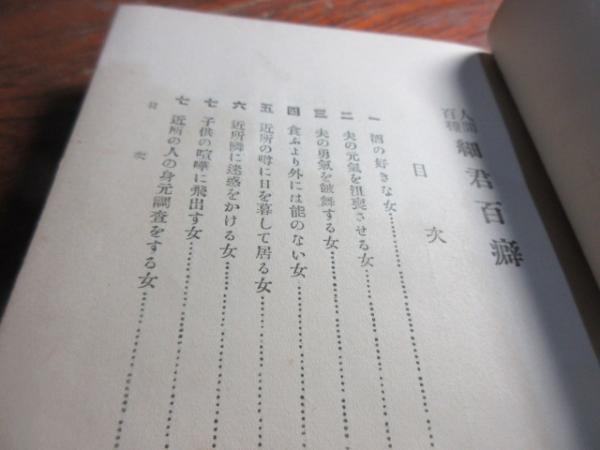 人間百種 細君百癖
目次
一 酒の好きな女
二 夫の元氣を沮喪させる女
三 夫の勇氣を鼓舞する女
四 食ふより外には能のない女
五 近所の噂に日を暮して居る女
六 近所隣に迷惑をかける女
七 子供の喧嘩に飛出す女
七 近所の人の身元調査をする女
目次